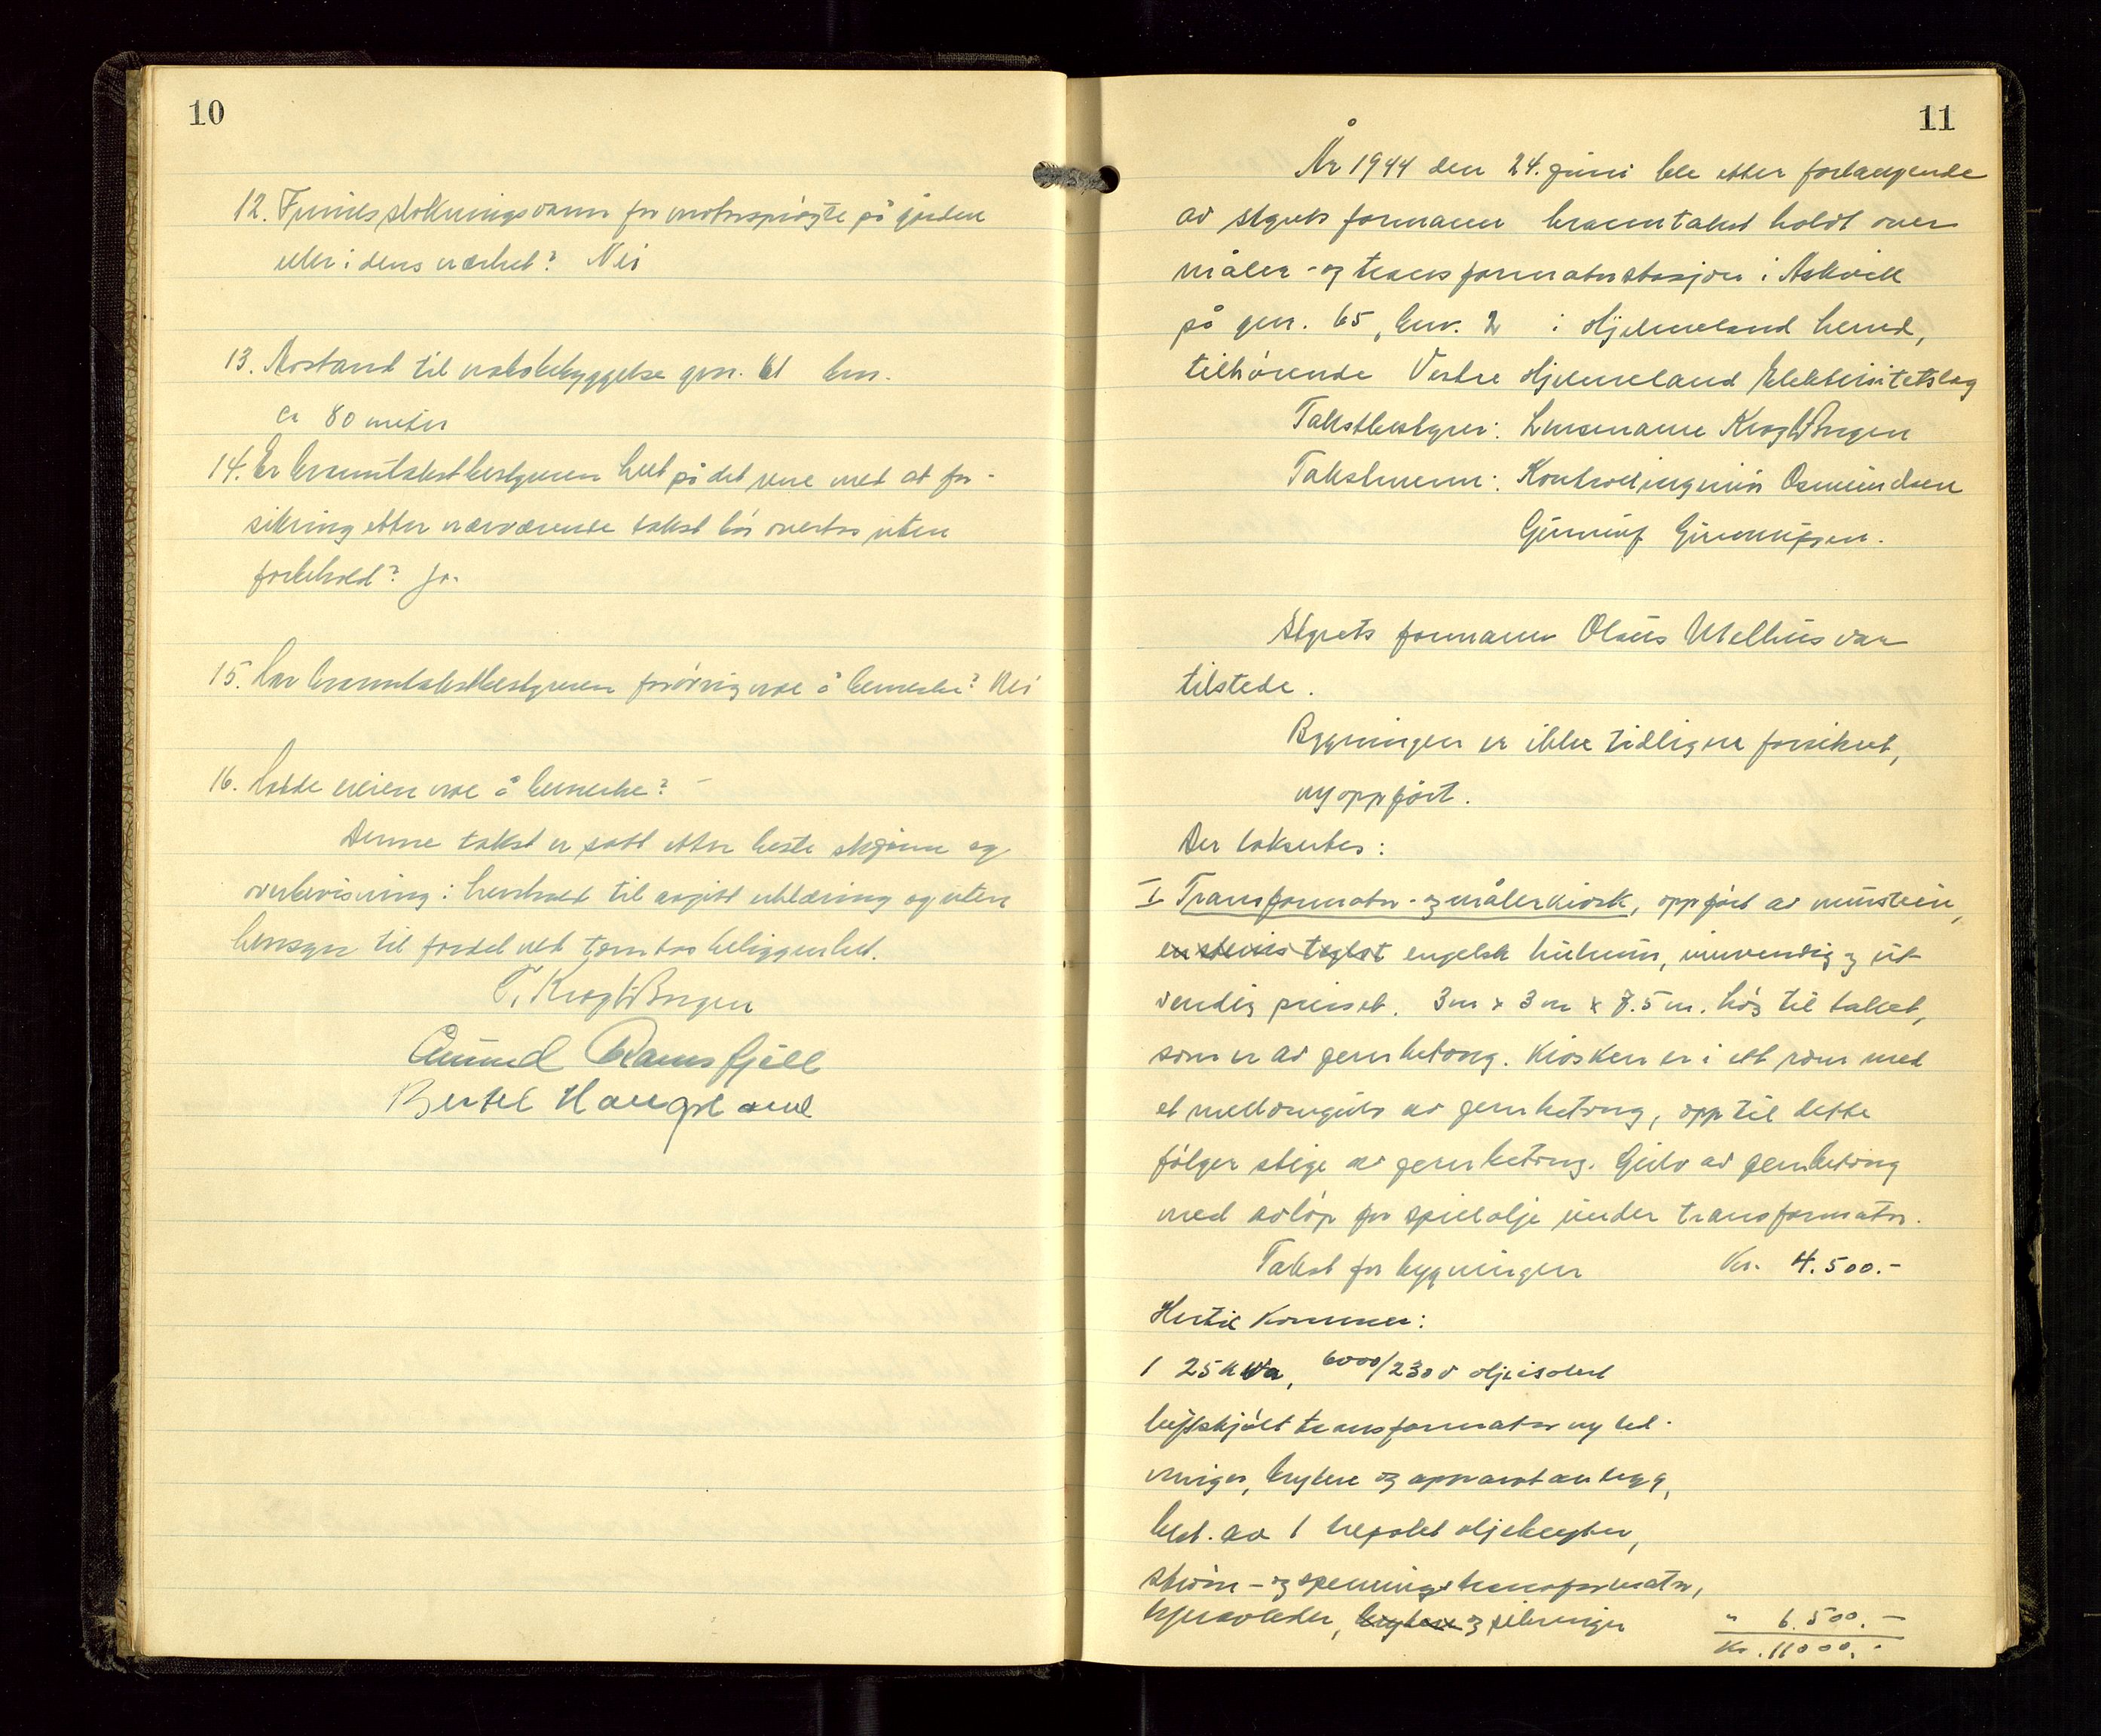 10
12. Finnes slokningsvann for motorsprøyte på gården
eller i dens nærhet? Nei
13. Avstand til nabobebyggelse gnr. 61 bnr.
ca 80 meter
14. Er branntakstbestyreren helt på det rene med at for-
sikring etter nærværende takst bør overtas uten
forbehold? Ja.
15. Har branntakstbestyreren forøvrig noe å bemerke? Nei
16. Hadde eieren noe å bemerke? –
Denne takst er satt etter beste skjønn og
overbevisning i henhold til avgitt erklæring og uten
hensyn til fordel ved tomtas beliggenhet.
T. Krogh Borgen
Åmund Ramsfjell
Bertel Haugsland
11
År 1944 den 24. juni ble etter forlangende
av styrets formann branntakst holdt over
måler- og transformatorstasjon i Askvik
på gnr. 65, bnr. 2 i Hjelmeland herred,
tilhørende Vestre Hjelmeland Elektrisitetslag
Takstbestyrer: Lensmann Krogh Borgen
Takstmenn: Kontrollingeniør Osmundsen
Gunnulf Gunnulfsen.
Styrets formann Olaus Melhus var
tilstede.
Bygningen er ikke tidligere forsikret,
nyoppført.
Der takseres:
I Transformator- og målerkiosk, oppført av murstein,
en steins teglst engelsk hulmur, innvendig og ut-
vendig pusset. 3m x 3m x 7.5 m. høg til taket,
som er av jernbetong. Kiosken er i ett rom med
et mellomgulv av jernbetong, opp til dette
følger stige av jernbetong. Gulv av jernbetong
med avløp for spillolje under transformator.
Takst for bygningen Kr. 4.500.-
Hertil kommer:
1 25 kVa, 6000/230 v oljeisolert
luftkjølt transformator og led-
ninger, brytere og apparatanlegg,
best. av 1 trepolet oljebryter,
strøm- og spenningstransformator,
overspavleder, brytere og sikringer " 6.500.-
Kr. 11000.-